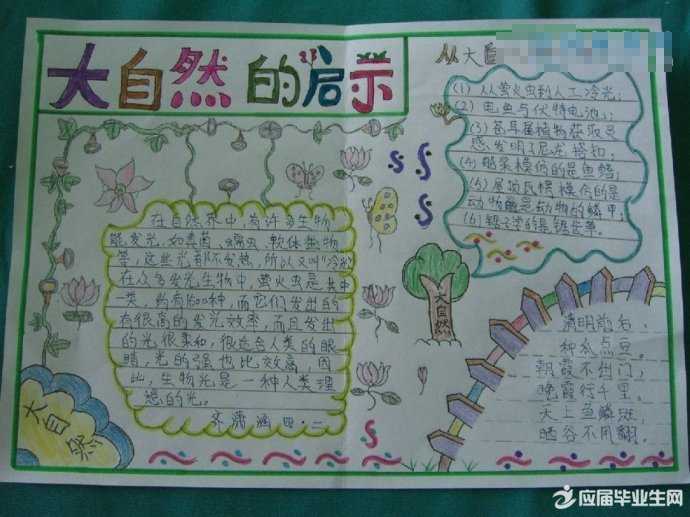 大自然的启示
从大自
(1) 从萤火虫到人工冷光;
(2) 电鱼与伏特电池;
(3) 苍耳属植物获取灵
感发明了尼龙搭扣;
(4) 船桨模仿的是鱼鳍;
(5) 屋顶瓦楞模仿的是
动物的鳞甲;
(6) 锯子学的是锯齿草。
在自然界中,有许多生物
能发光,如真菌、蠕虫、软体动物
等,这些光都不发热,所以又叫“冷光”
在众多发光生物中,萤火虫是其中
一类,约有1500种,而它们发出的
有很高的发光效率,而且发出
的光很柔和,很适合人类的眼
睛,光的强也比较高,因
此,生物光是一种人类理
想的光。
齐潇涵 四·二
大自然
大自然
清明前后,
种瓜点豆。
朝霞不出门,
晚霞行千里。
天上鱼鳞斑,
晒谷不用翻。
应届毕业生网